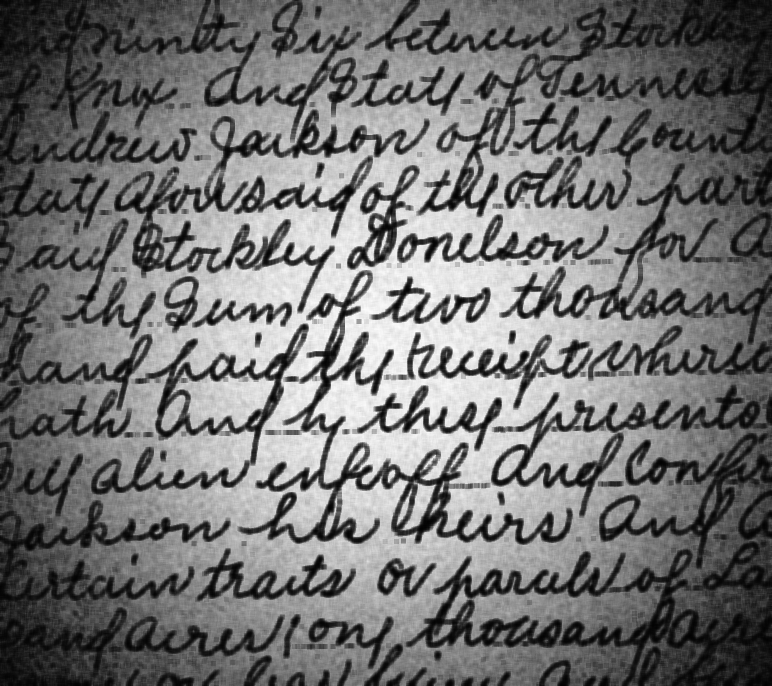 and ninety Six between Stockley
of Knox and State of Tennessey
Andrew Jackson of the County
State aforesaid of the other part
Said Stockley Donelson for a
of the Sum of two thousand
hand paid the receipt whereo
hath and by these presents
Sell alien enfeoff and Confir
Jackson his heirs and a
Certain tracts or parcels of La
sand acres one thousand acre